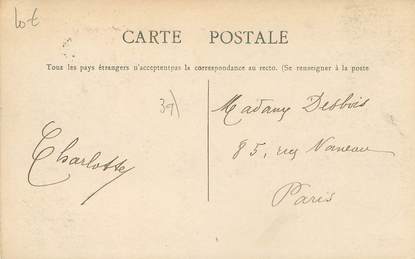 lot
CARTE POSTALE
Tous les pays étrangers n'acceptentpas la correspondance au recto. (Se renseigner à la poste
Madame Desbois
85, rue Vaneau
Paris
Charlotte